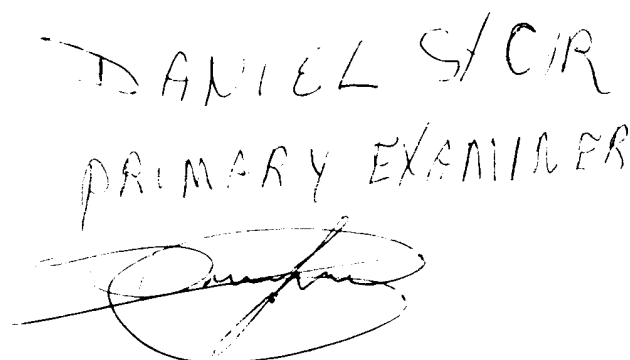 DANIEL St CIR
PRIMARY EXAMINER